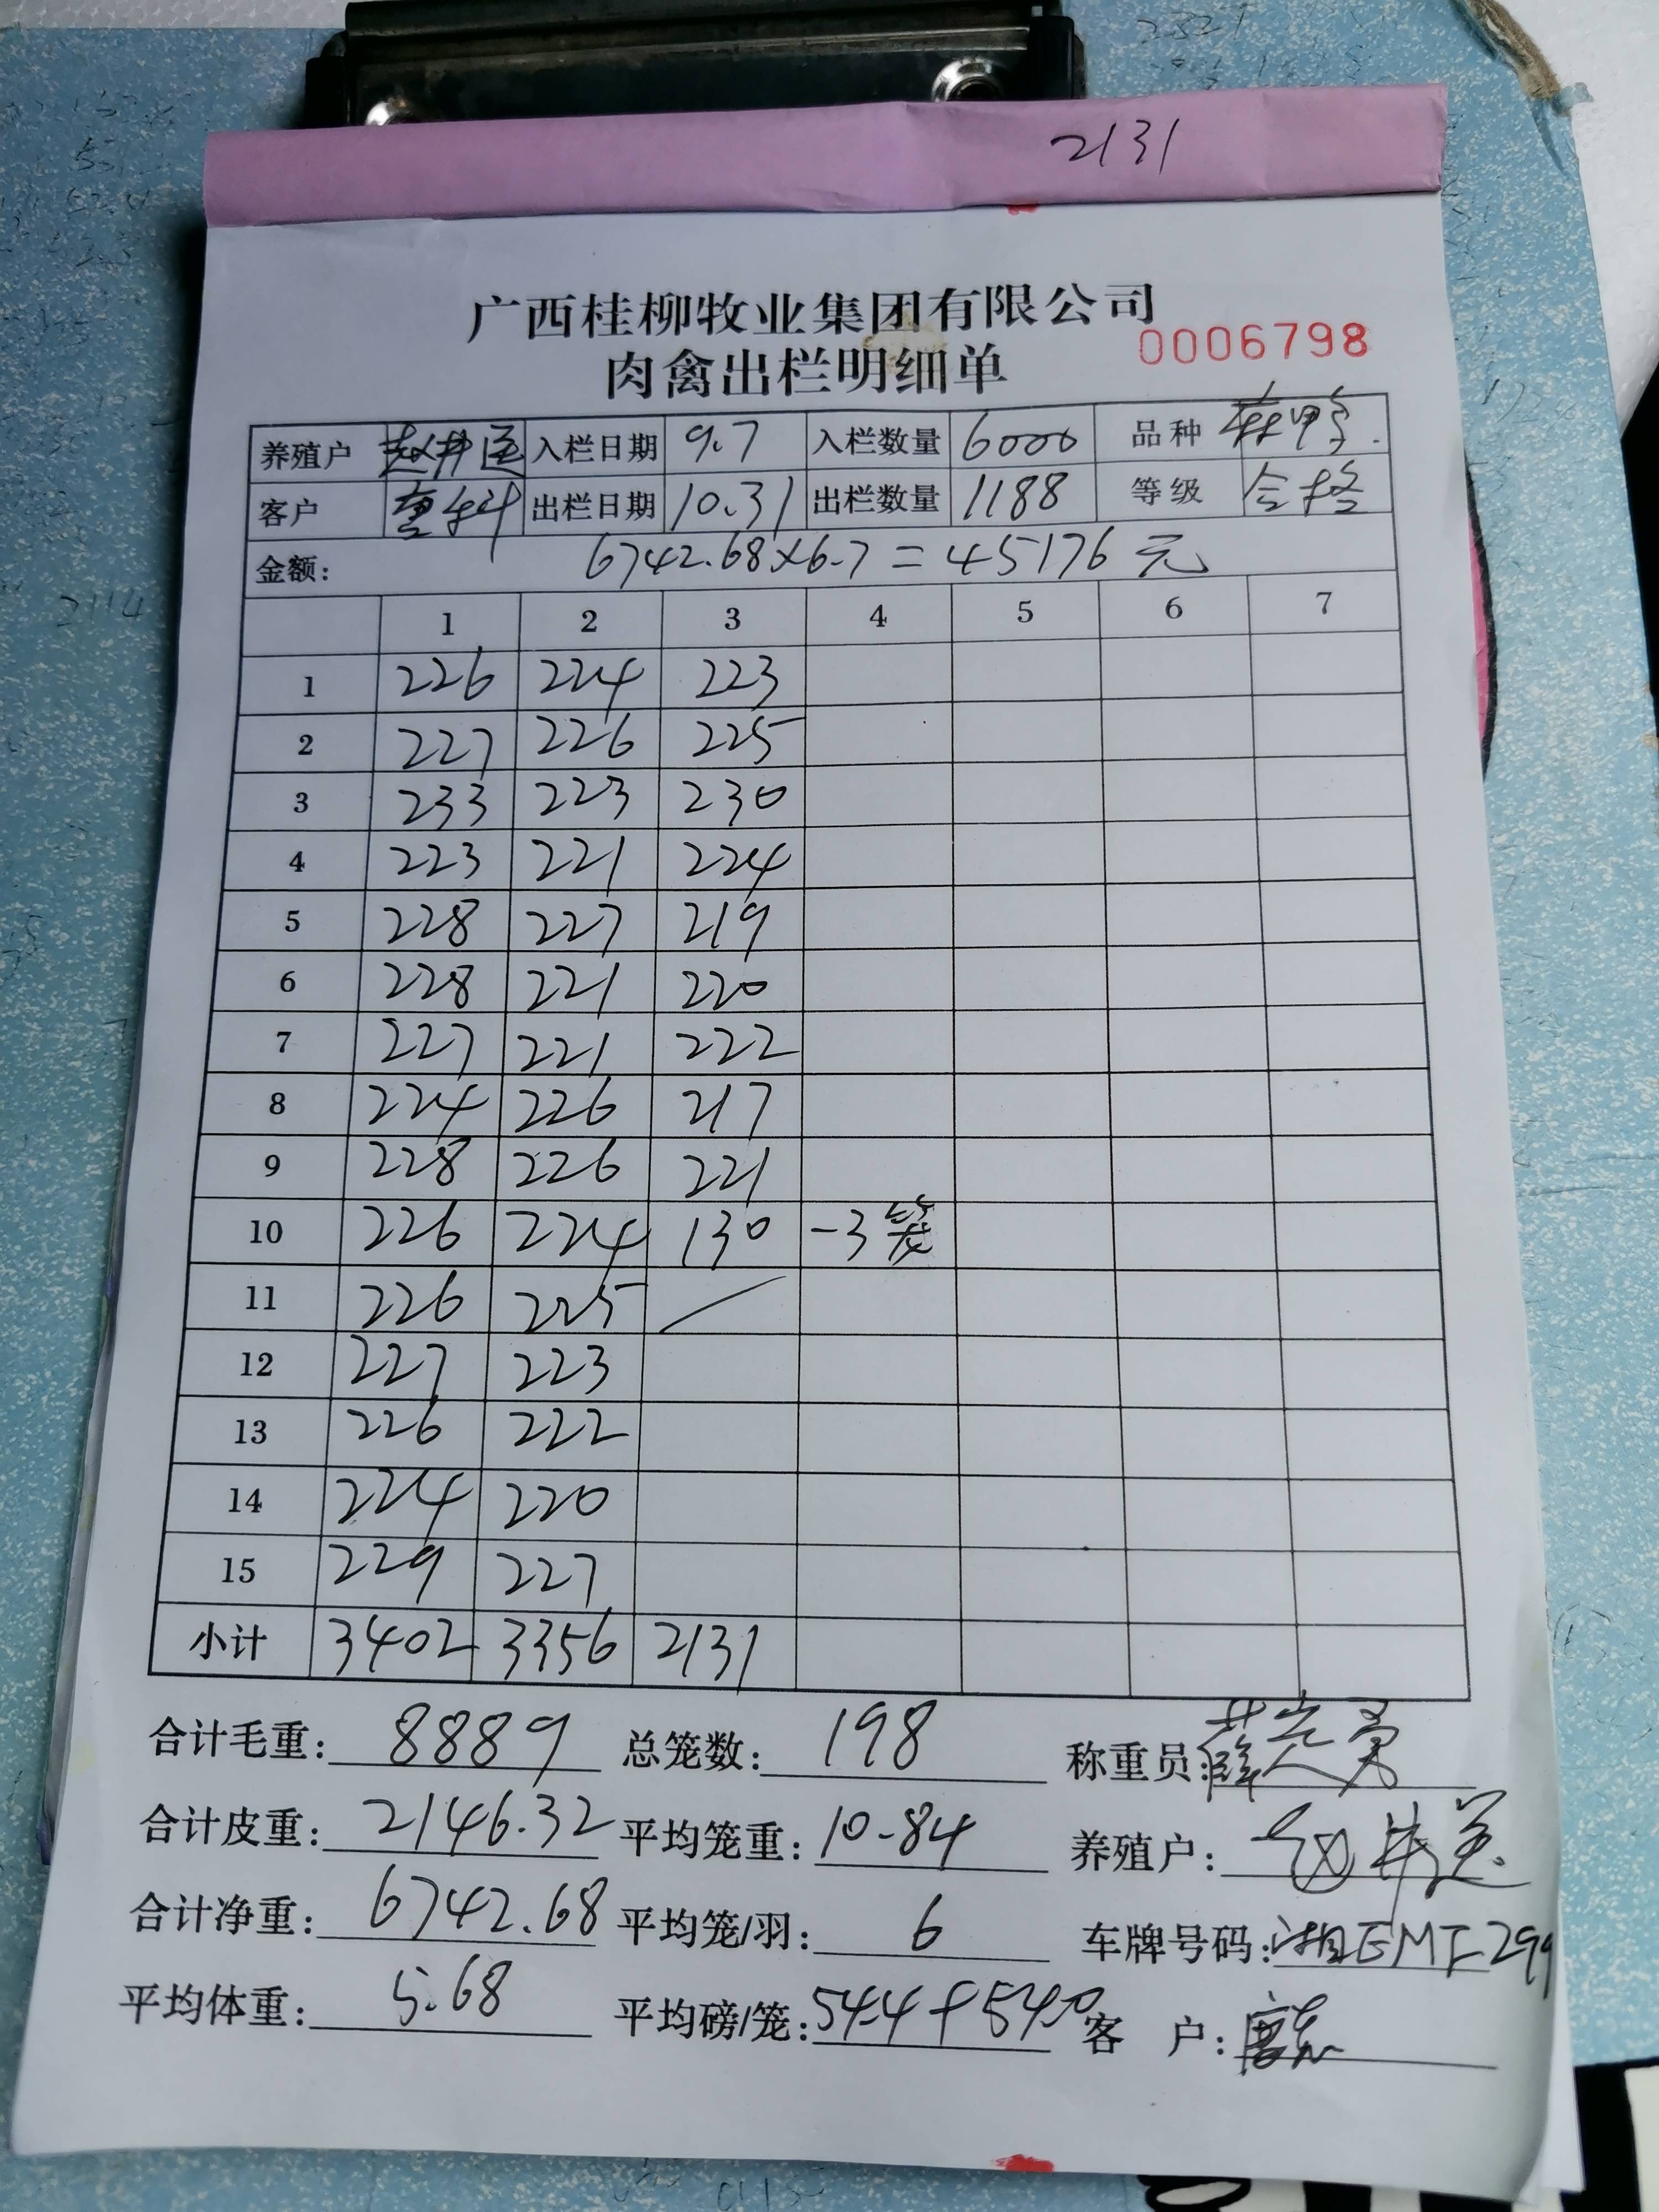 2131
广西桂柳牧业集团有限公司
肉禽出栏明细单
0006798
养殖户 入栏日期 9.7 入栏数量 6000 品种
客户 出栏日期 10.31 出栏数量 1188 等级 合格
金额: 6742.68×6.7=45176元
1 2 3 4 5 6 7
1 226 224 223
2 227 226 225
3 233 223 230
4 223 221 224
5 228 227 219
6 228 221 220
7 227 221 222
8 224 226 217
9 228 226 221
10 226 224 130 -3笼
11 226 225 /
12 227 223
13 226 222
14 224 220
15 229 227
小计 3402 3356 2131
合计毛重: 8889 总笼数: 198 称重员:
合计皮重: 2146.32 平均笼重: 10-84 养殖户:
合计净重: 6742.68 平均笼/羽: 6 车牌号码:
平均体重: 5.68 平均磅/笼: 544+540 客 户: